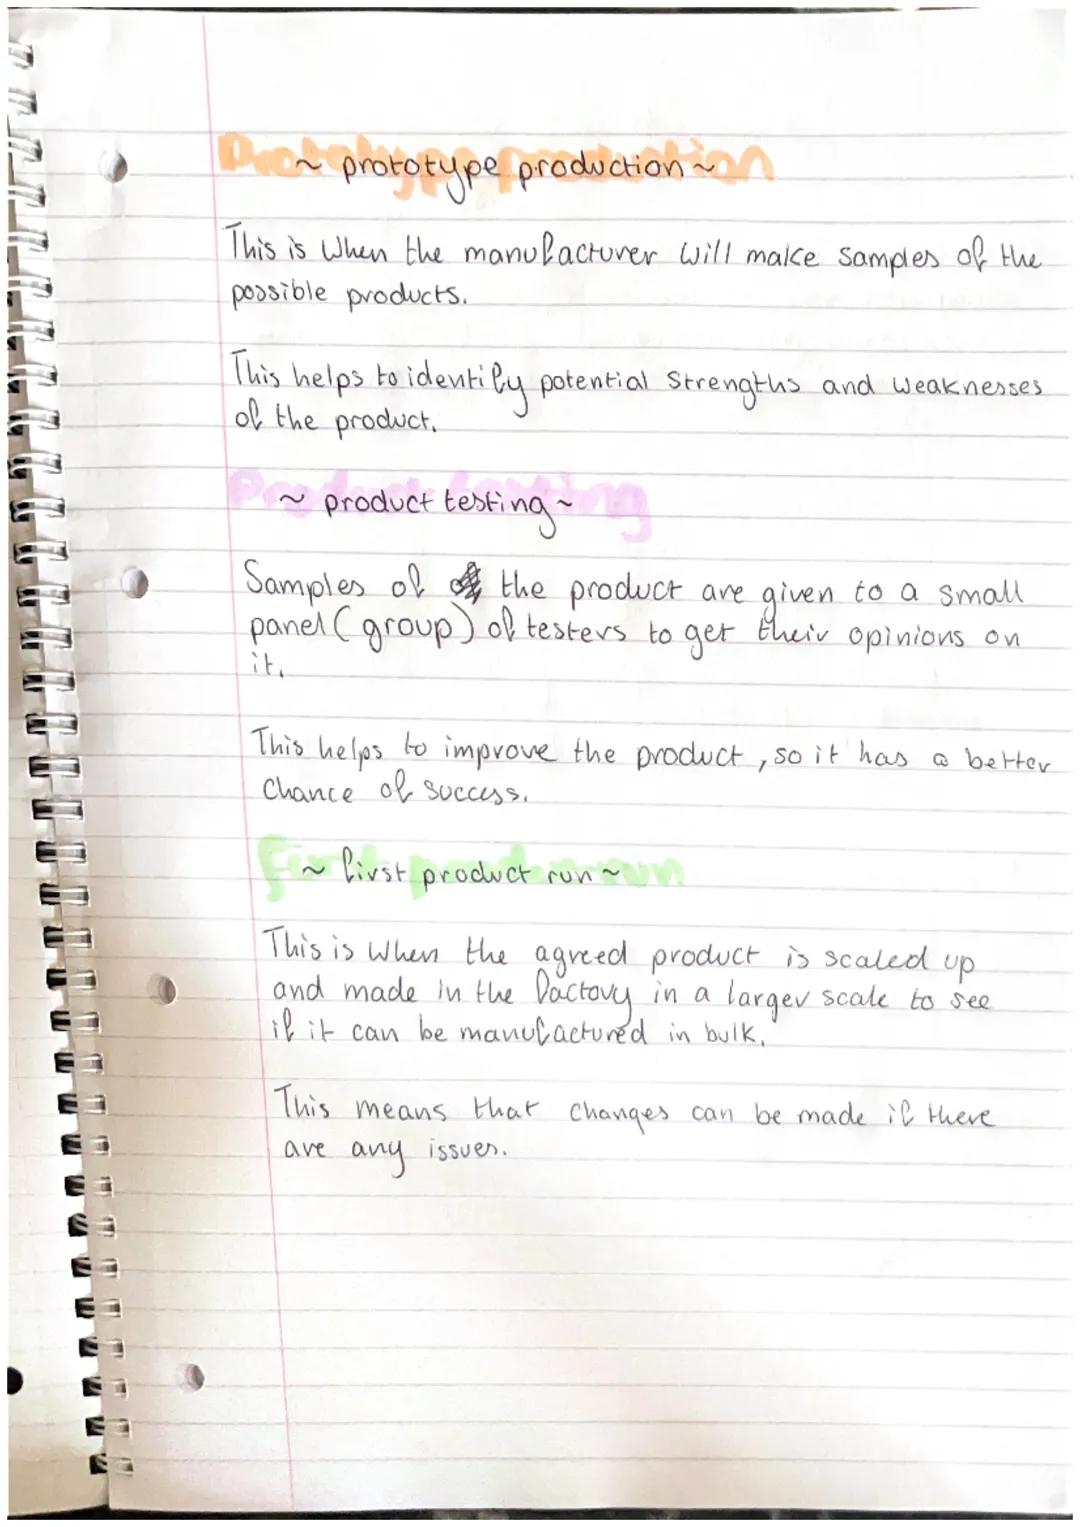 ~ prototype production ~
This is when the manufacturer will make samples of the
possible products.
This helps to identify potential strengths and weaknesses
of the product.
~ product testing ~
Samples of the product are given to a small
panel (group) of testers to get their opinions on
it.
This helps to improve the product, so it has a better
chance of success.
~ first product run ~
This is when the agreed product is scaled up
and made in the factory in a larger scale to see
if it can be manufactured in bulk.
This means that changes can be made if there
are any issues.